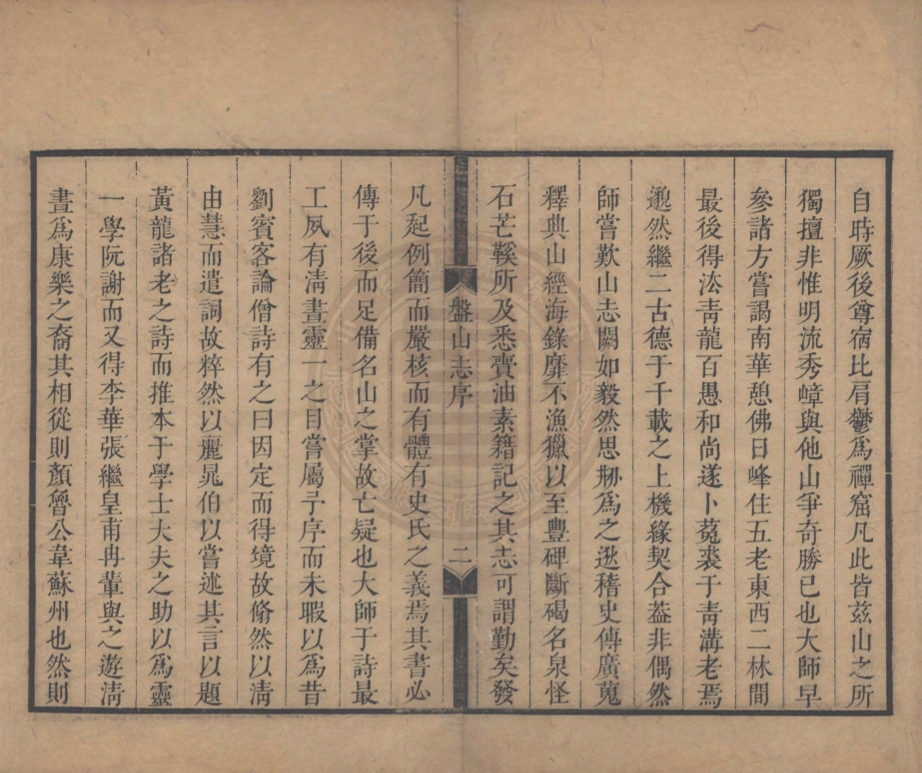 自時厥後尊宿比肩鬱爲禪窟凡此皆兹山之所
獨擅非惟明流秀嶂與他山爭奇勝已也大師早
參諸方嘗謁南華憩佛日峰住五老東西二林間
最後得法青龍百愚和尚遂卜菟裘于青溝老焉
邈然繼二古德于千載之上機緣契合葢非偶然
師嘗歎山志闕如毅然思刱爲之逖稽史傳廣蒐
釋典山經海錄靡不漁獵以至豐碑斷碣名泉怪
石芒鞵所及悉賫油素籍記之其志可謂勤矣發
盤山志序
二
凡起例簡而嚴核而有體有史氏之義焉其書必
傳于後而足備名山之掌故亡疑也大師于詩最
工夙有淸晝靈一之目嘗屬予序而未暇以爲昔
劉賓客論僧詩有之曰因定而得境故翛然以淸
由慧而遣詞故粹然以麗晁伯以嘗述其言以題
黃龍諸老之詩而推本于學士大夫之助以爲靈
一學阮謝而又得李華張繼皇甫冉輩與之遊淸
晝爲康樂之裔其相從則顏魯公韋蘇州也然則